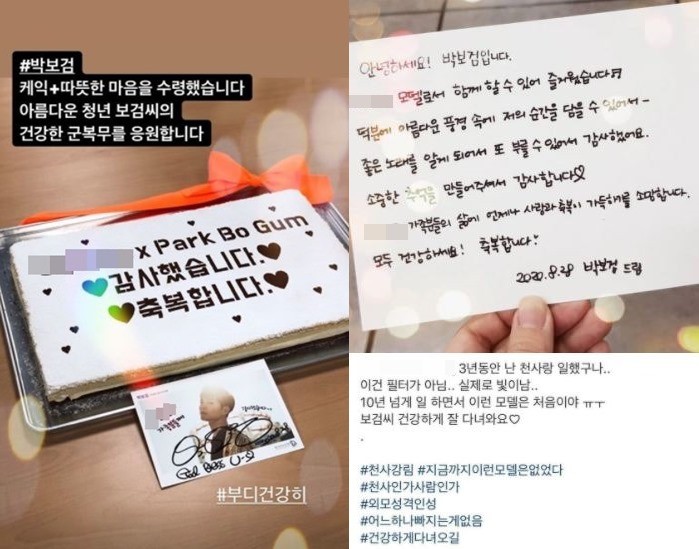 #박보검
케익+따뜻한 마음을 수령했습니다
아름다운 청년 보검씨의
건강한 군복무를 응원합니다
x Park Bo Gum
감사했습니다.
축복합니다.
God Bless U-
#부디건강히
안녕하세요! 박보검입니다.
모델로서 함께 할 수 있어 즐거웠습니다
덕분에 아름다운 풍경 속에 저의 순간을 담을 수 있어서~
좋은 노래를 알게 되어서 또 부를 수 있어서 감사했어요.
소중한 추억을 만들어주셔서 감사합니다♡
가족분들의 삶에 언제나 사랑과 축복이 가득하기를 소망합니다.
모두 건강하세요! 축복합니다
2020.8.28 박보검 드림
3년동안 난 천사랑 일했구나..
이건 필터가 아님.. 실제로 빛이남..
10년 넘게 일 하면서 이런 모델은 처음이야 ㅠㅜ
보검씨 건강하게 잘 다녀와요♡
.
#천사강림 #지금까지이런모델은없었다
#천사인가사람인가
#외모성격인성
#어느하나빠지는게없음
#건강하게다녀오길